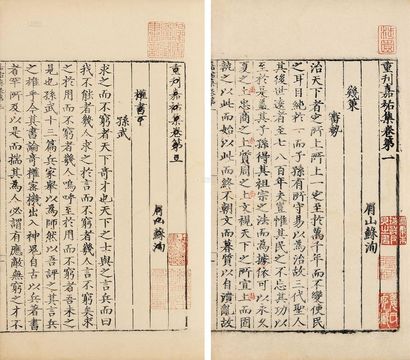 重刊嘉祐集卷第一
眉山蘇洵
幾策
審勢
治天下者定所上所上一定至於萬千年而不變使民
之耳目純於一而子孫有所守易以為治故三代聖人
其後世遠者至七八百年夫豈惟其民之不忘其功以
至於是蓋其子孫得其祖宗之法而為據依可以永久
夏之上忠商之上質周之上文視天下之所宜上而固
執之以此而始以此而終不朝文而暮質以自潰亂故
重刊嘉祐集卷第三
眉山蘇洵
權書下
孫武
求之而不窮者天下奇才也天下之士與之言兵而曰
我不能者幾人求之於言而不窮者幾人言不窮矣求
之於用而不窮者幾人嗚呼至於用而不窮者吾未之
見也孫武十三篇兵家舉以為師然以吾評之其言兵
之雄乎今其書論奇權密機出入神鬼自古以兵著書
者罕所及以是而揣其為人必謂有應敵無窮之才不